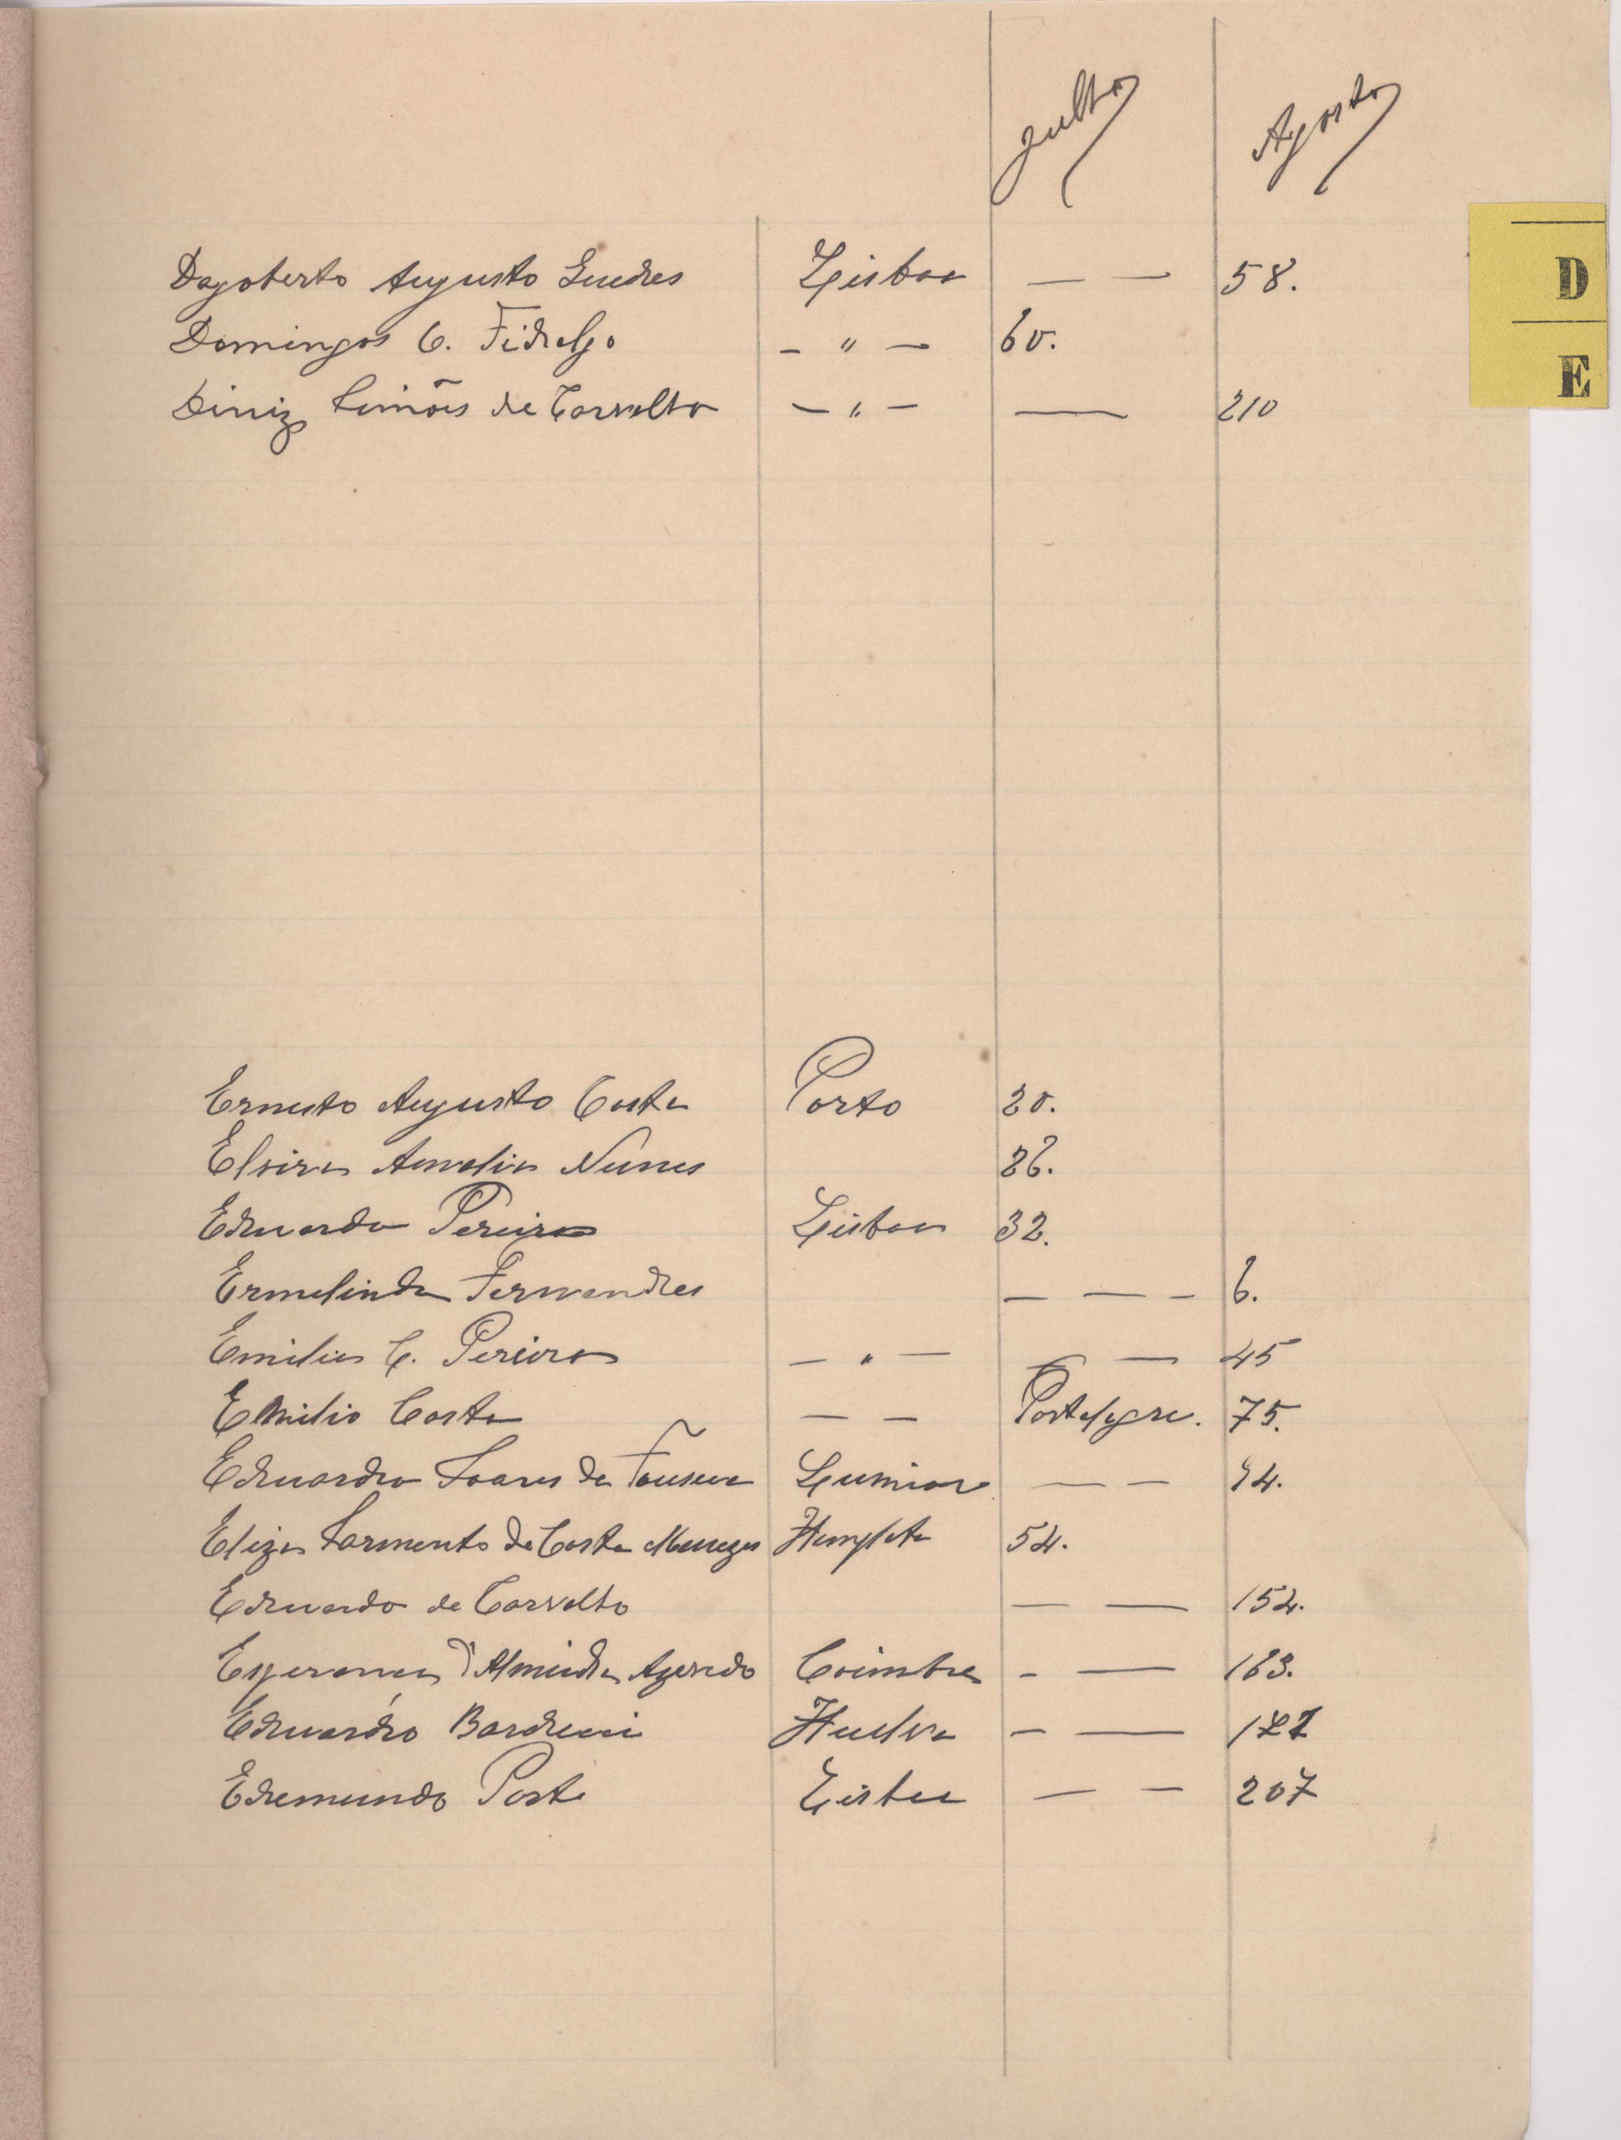 Julho Agosto
Dagoberto Augusto Guedes Lisboa — — 58.
D
Domingos C. Fidalgo — " — 60.
E
Diniz Simões de Carvalho — " — — 210
Ernesto Augusto Costa Porto 20.
Elvira Amelia Nunes 26.
Eduardo Pereira Lisboa 32.
Ermelinda Fernandes — — - 6.
Emilia C. Pereira — " — — — 45
Emilio Costa — — Portalegre. 75.
Eduardo Soares da Fonseca Lumiar — — 94.
Eliza Sarmento da Costa Menezes 54.
Eduardo de Carvalho — — 152.
Esperança d'Almeida Azevedo Coimbra - — 163.
Eduardo Huelva - —
Edemundo Porto Lisboa — — 207